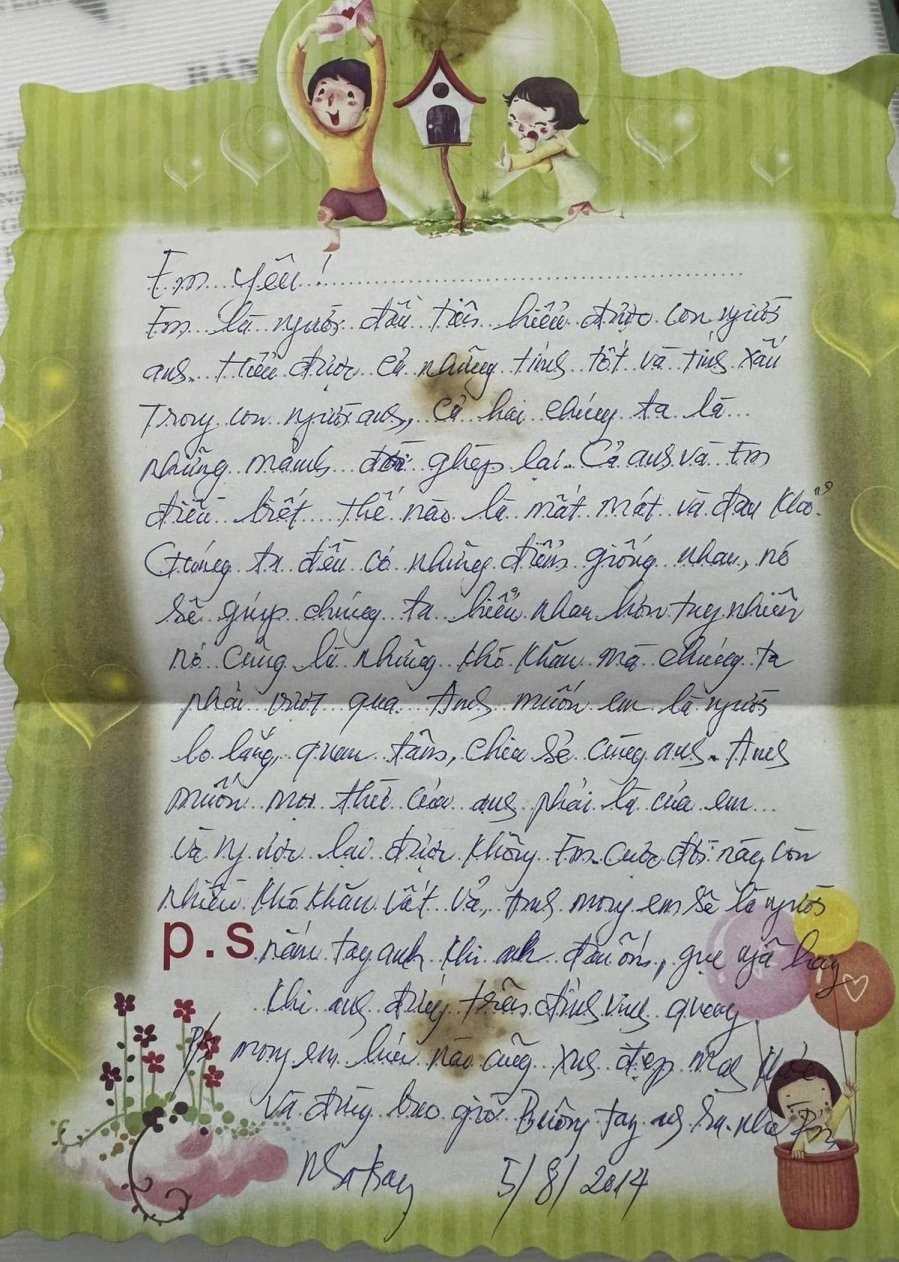 Em yêu!
Em là người đầu tiên hiểu được con người
anh. Hiểu được cả những tính tốt và tính xấu
Trong con người anh, cả hai chúng ta là
những mảnh ghép lại. Cả anh và Em
điều biết thế nào là mất mát và đau khổ.
Chúng ta đều có những điểm giống nhau, nó
sẽ giúp chúng ta hiểu nhau hơn tuy nhiên
nó cũng là những khó khăn mà chúng ta
phải vượt qua. Anh muốn em là người
lo lắng, quan tâm, chia sẻ cùng anh. Anh
muốn mọi thứ của anh phải là của em
và ngược lại được không Em. Cuộc đời này còn
nhiều khó khăn vất vả, Anh mong em sẽ là người
p.s nắm tay anh khi anh đau ốm, gục ngã hay
khi anh đứng trên đỉnh vinh quang
P/s mong em lúc nào cũng xinh đẹp mạnh khỏe
và đừng bao giờ Buông tay anh ra nhé Em
Nha trang 5/8/2014